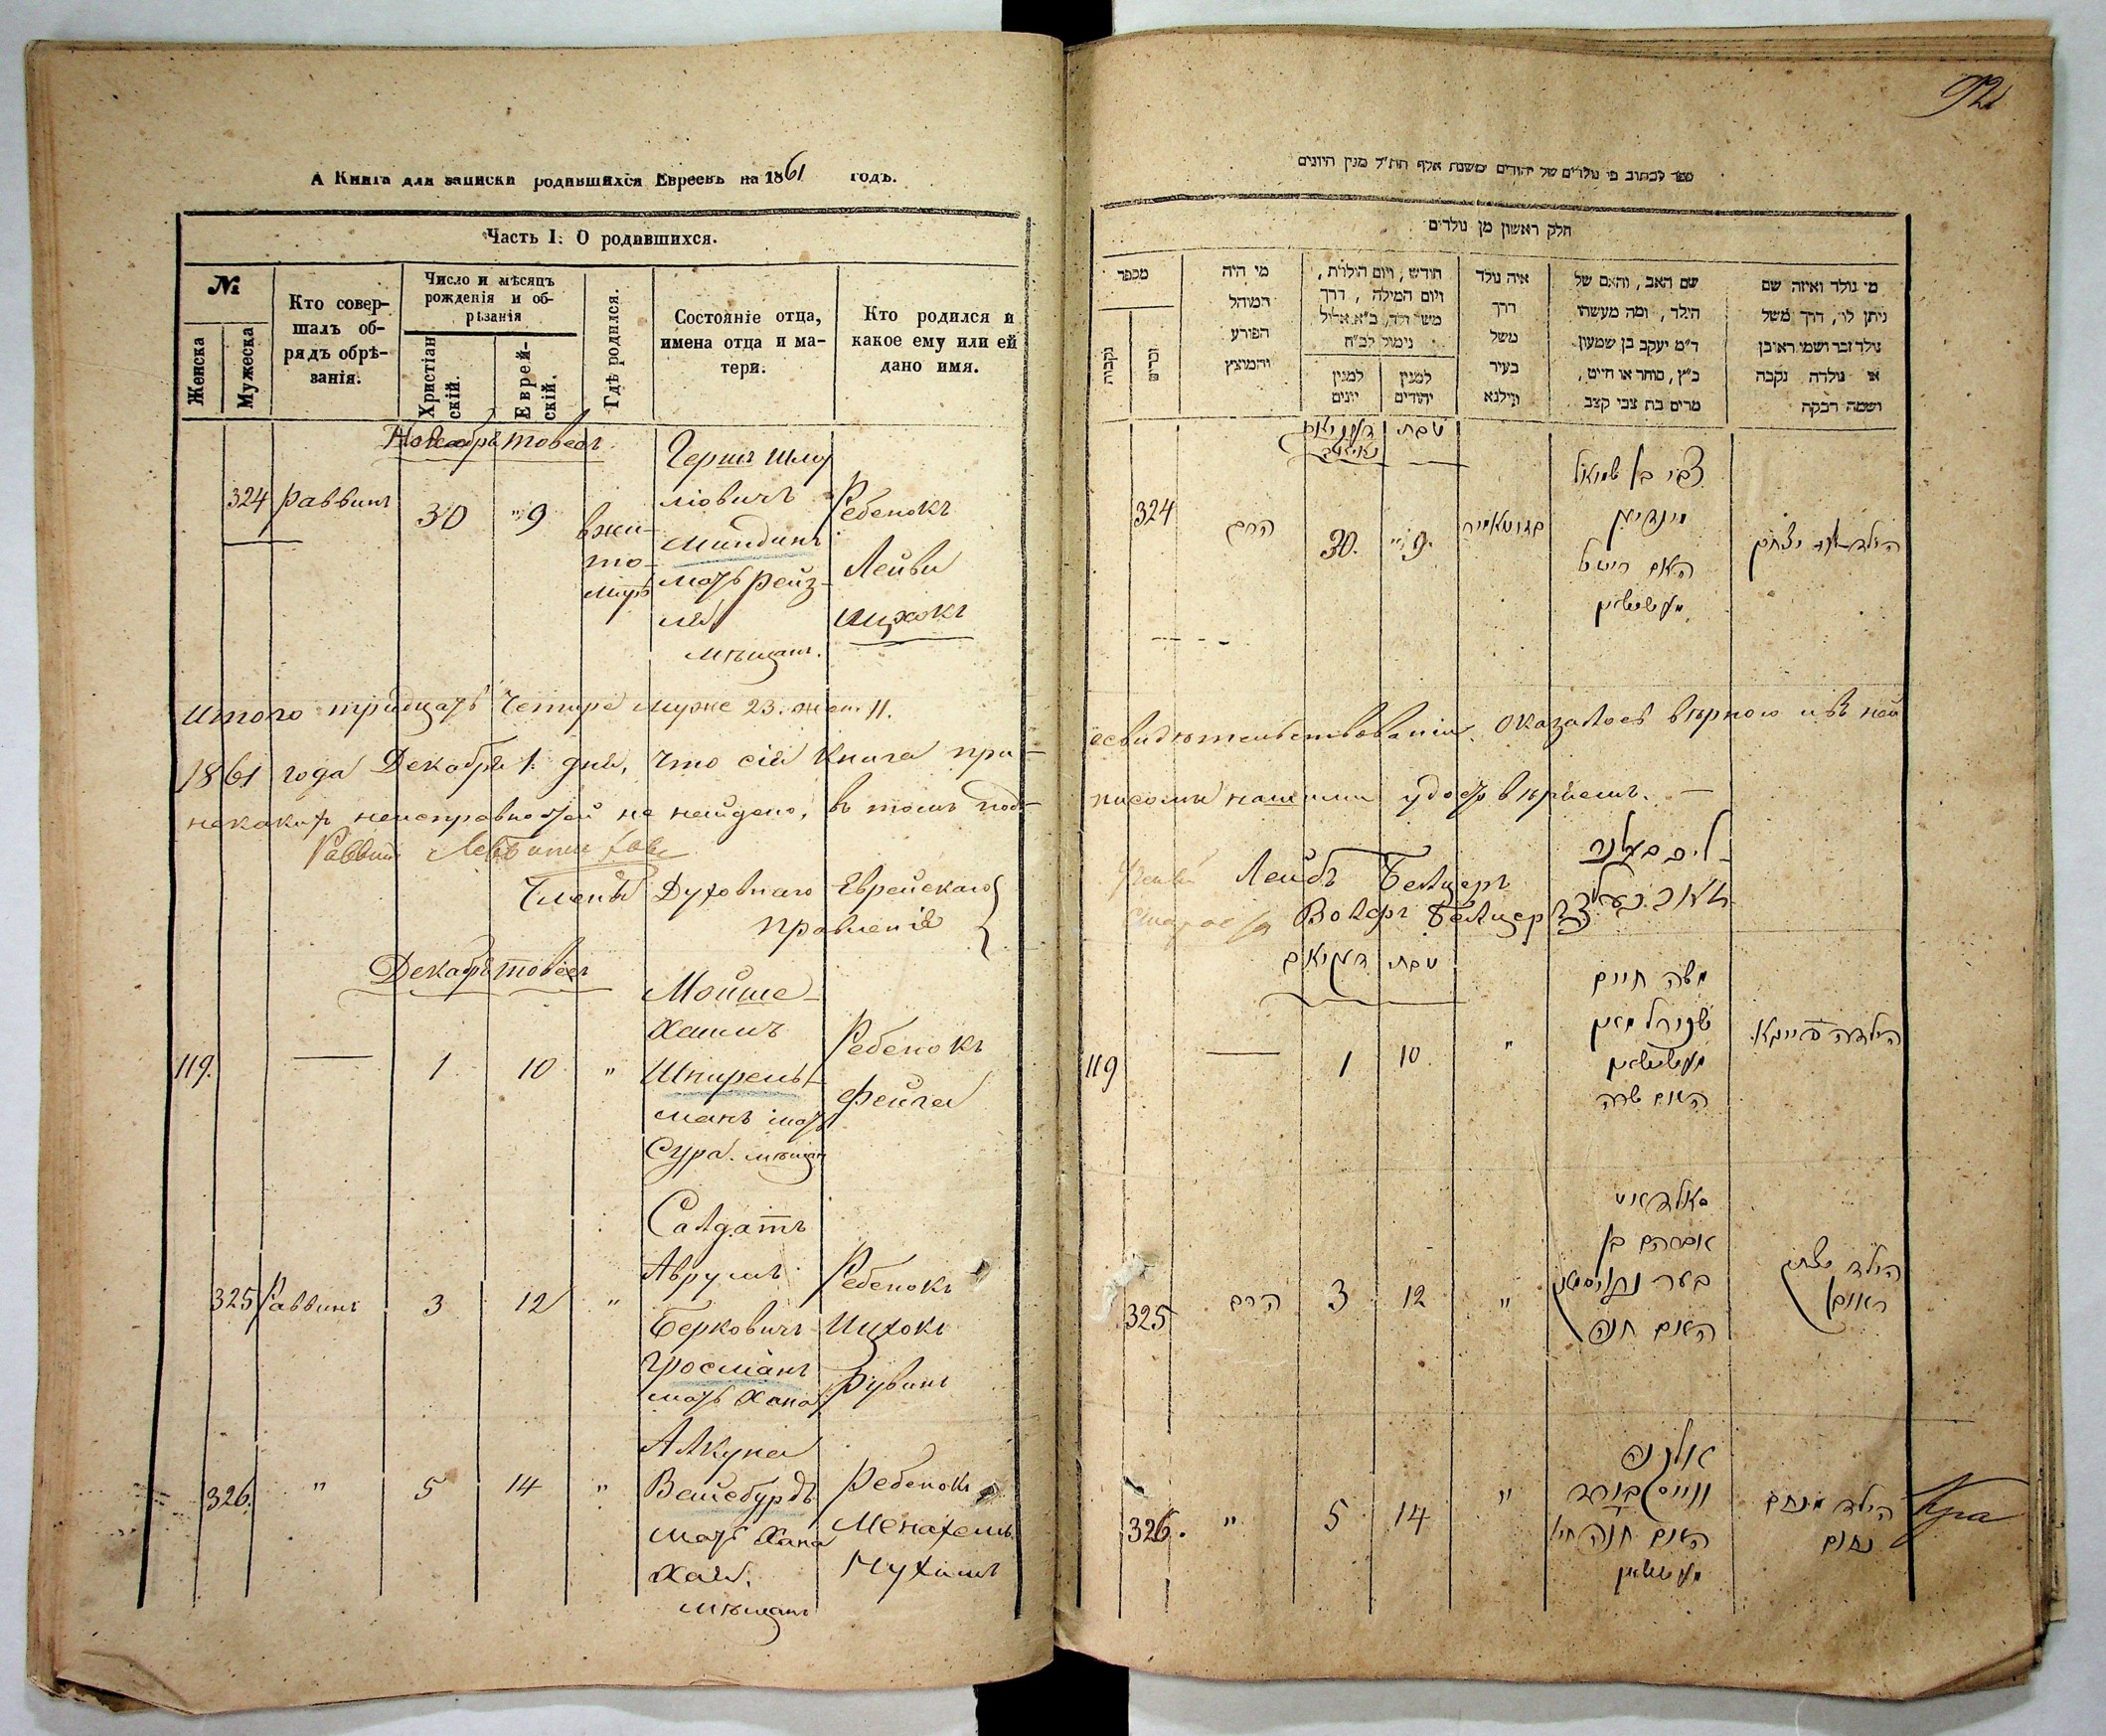 А Книга для записки родившихся Евреевъ на 1861 годъ.
Часть I. О родившихся.
№
Женска
Мужеска
Кто совер-
шалъ об-
рядъ обрѣ-
занія.
Число и мѣсяцъ
рожденія и об-
рѣзанія
Христіан
скій.
Еврей-
скій.
Гдѣ родился.
Состояніе отца,
имена отца и ма-
тери.
Кто родился и
какое ему или ей
дано имя.
Ноеабръ товесъ
324 Раввинъ 30 9
в жи-
то-
миръ
Гершъ Шму
ліовичъ
Миндинъ
мать Рейз-
ля
мѣщан.
Ребенокъ
Лейви
Ицхокъ
Итого тридцать четире муже 23. жен. 11.
1861 года Декабря 1. дня, что сія книга при
никакихъ неисправностей не найдено, в томъ под-
Раввинъ
Члены Духовнаго Еврейскаго
правленія
Декабръ товесъ
119. — 1 10 "
Мойше-
Хаимъ
Шпирель-
манъ мать
Сура. мѣщан
Ребенокъ
Фейга
325 Раввинъ 3 12 "
Салдатъ
Аврумъ
Берковичъ
Гросманъ
мать Хана
Ребенокъ
Ицхокъ
Рувинъ
326. " 5 14 "
Алкуна
Вайсбурдъ
мать Хана
Хая.
мѣщанъ
Ребенокъ
Менахемъ
Нухимъ
92
ספר לכתוב פי נולדים של יהודים משנת אלף תת״ל מנין היונים
חלק ראשון מן נולדים
מספר
נקבות
זכרים
מי היה
המוהל
הפורע
והמוצץ
חודש, ויום הולדת,
ויום המילה, דרך
משל ולד, ב״א אלול
נימול לב״ח
למנין
יונים
למנין
יהודים
איה נולד
דרך
משל
בעיר
ווילנא
שם האב, והאם של
הילד, ומה מעשהו
ד״מ יעקב בן שמעון
כ״ץ, סוחר או חייט,
מרים בת צבי קצב
מי נולד ואיזה שם
ניתן לו, דרך משל
נולד זכר ושמו ראובן
או נולדה נקבה
ושמה רבקה
טבת
324 הרב 30. 9. בזיטאמיר
צבי בן שמואל
מינדין
האם רייזל
הילד לוי יצחק
освидѣтельствованіи оказалось вѣрною и въ ней
писомъ нашими удостовѣряемъ. —
Лейбъ Белцеръ
Староста Волфъ Белцер
טבת דעקאבר
119 — 1 10 "
משה חיים
שפירלמאן
מעשטשאנין
האם שרה
הילדה פייגא
325 הרב 3 12 "
סאלדאט
אברהם בן
בער גרויסמאן
האם חנה
הילד יצחק
ראובן
326. " 5 14 "
אלקנה
ווייסבורד
האם חנה חיי'
מעשטשאנין
הילד מנחם
נחום
Кра